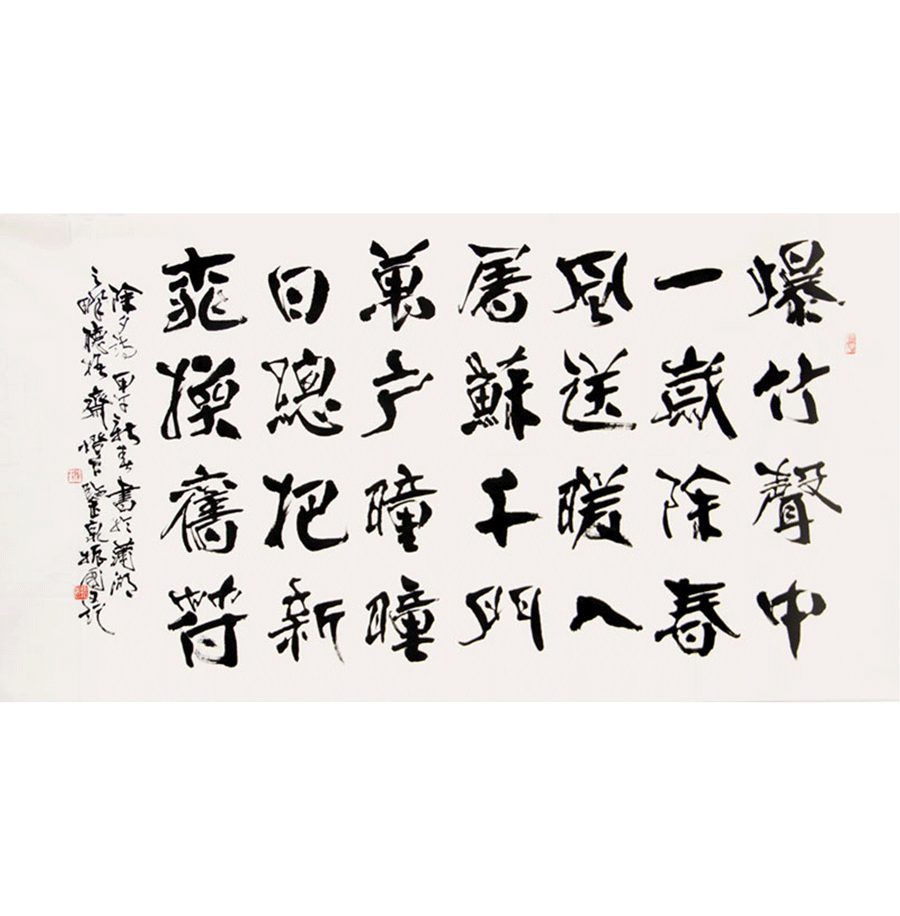 爆竹聲中
一歲除春
風送暖入
屠蘇千門
萬户曈曈
日總把新
桃換舊符
除夕詩 甲午新春 書於蒲湖
之畔 德 齋 燈下 振國